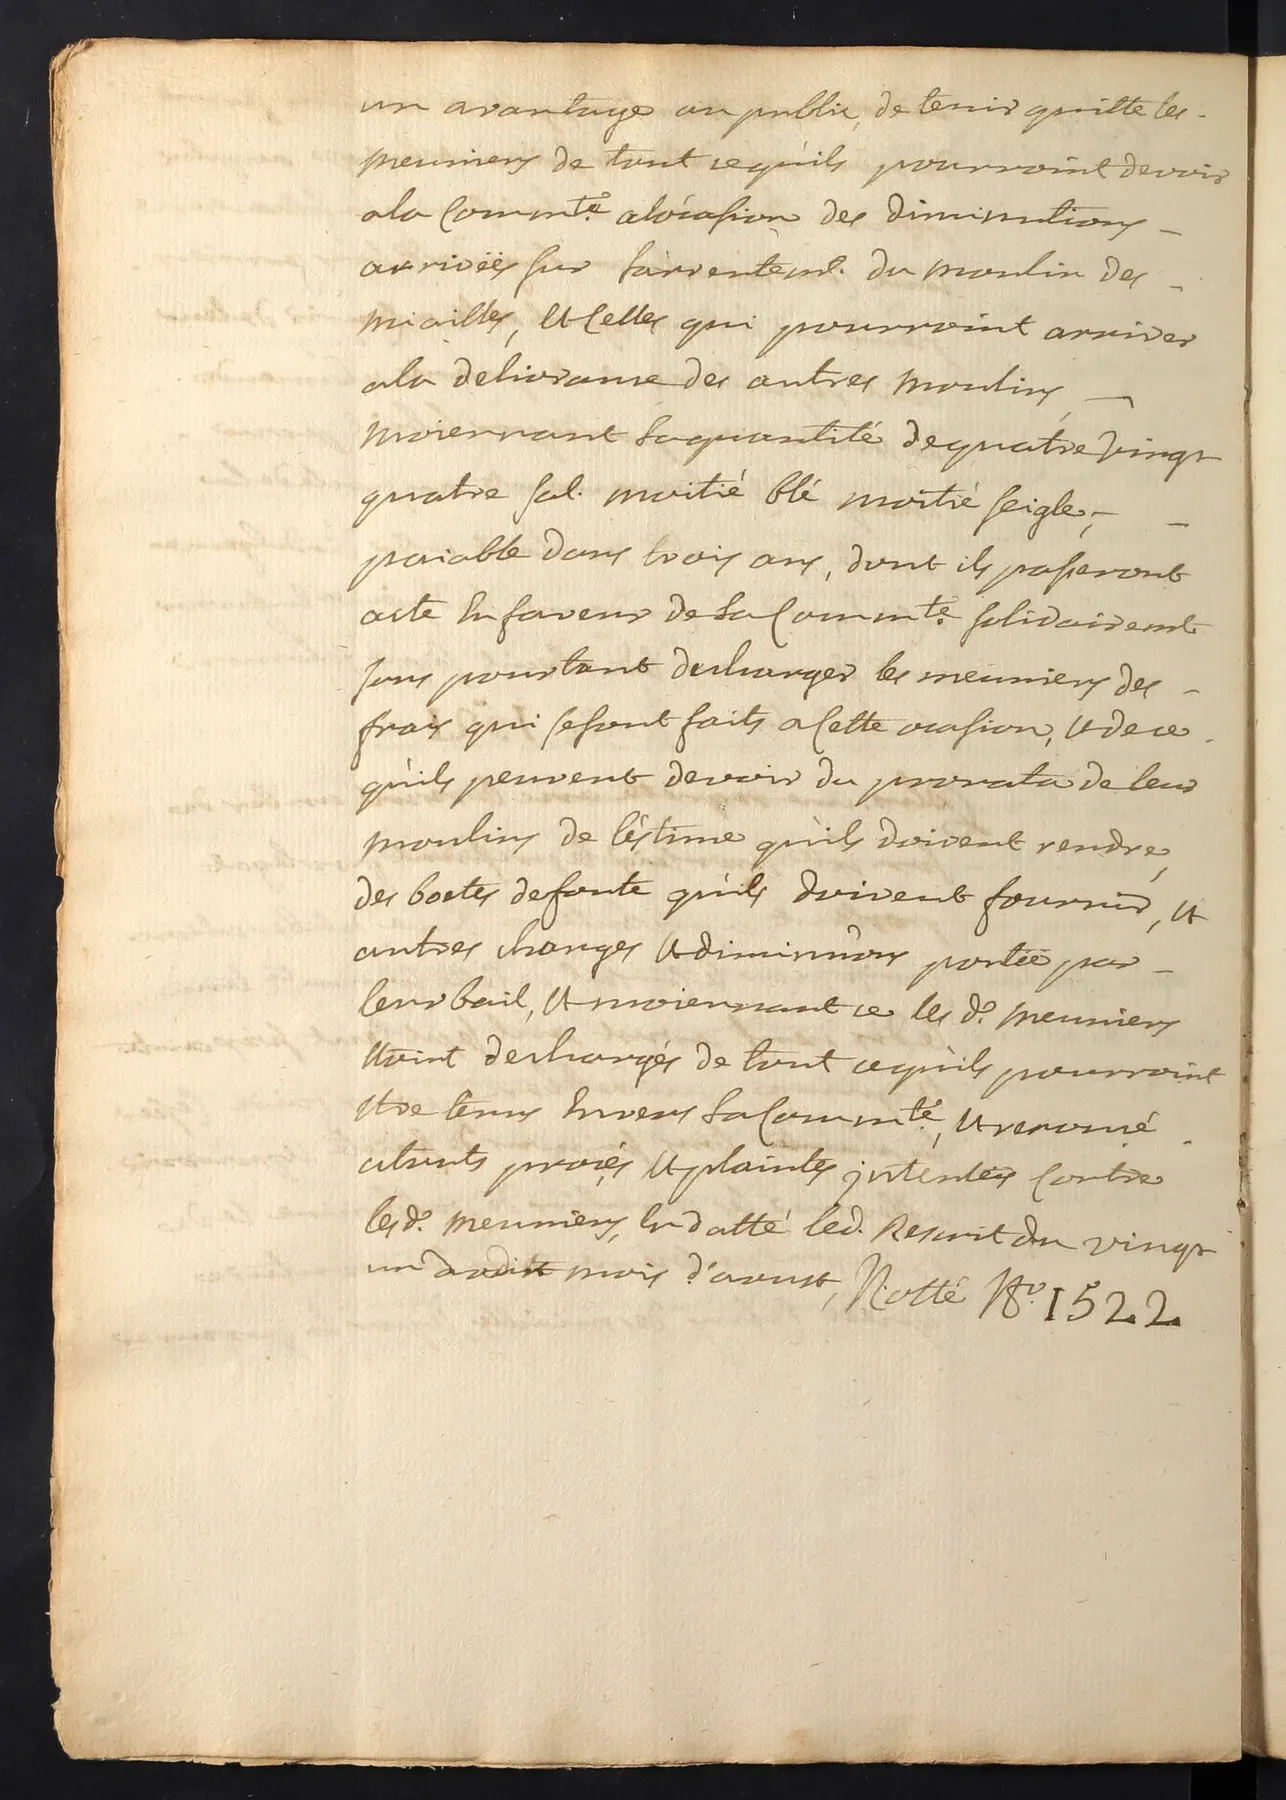 un avantage au public, de tenir quitte les
meuniers de tout cequ'ils pourroint devoir
ala Commté. alócasion des diminutions
arrivéës sur larrentemt. du moulin des
miailles, et Celles qui pourroint arriver
ala delivranse des autres moulins,
moiennant la quantité de quatre vingt
quatre sal. moitié blé moitié seigle,
paiable dans trois ans, dont ils passeront
acte En faveur de la Commté. solidairemt
sans pourtant decharger les meuniers des
frais qui se sont faits a Cette ocasion, et de ce
qu'ils peuvent devoir du prorata de leur
moulins de léstime qu'ils doivent rendre,
des boetes de fonte qu'ils doivent fournir, et
autres charges et diminuõns portéë par
leur bail, et moiennant ce les do. meuniers
étoint dechargés de tout cequ'ils pourroint
etre tenus Envers la Commté., et renoncé
atouts procés et plaintes intentés Contre
les do. meuniers, En datté led. Rescrit du vingt
un dudit mois d'aoust, Notté No. 1522